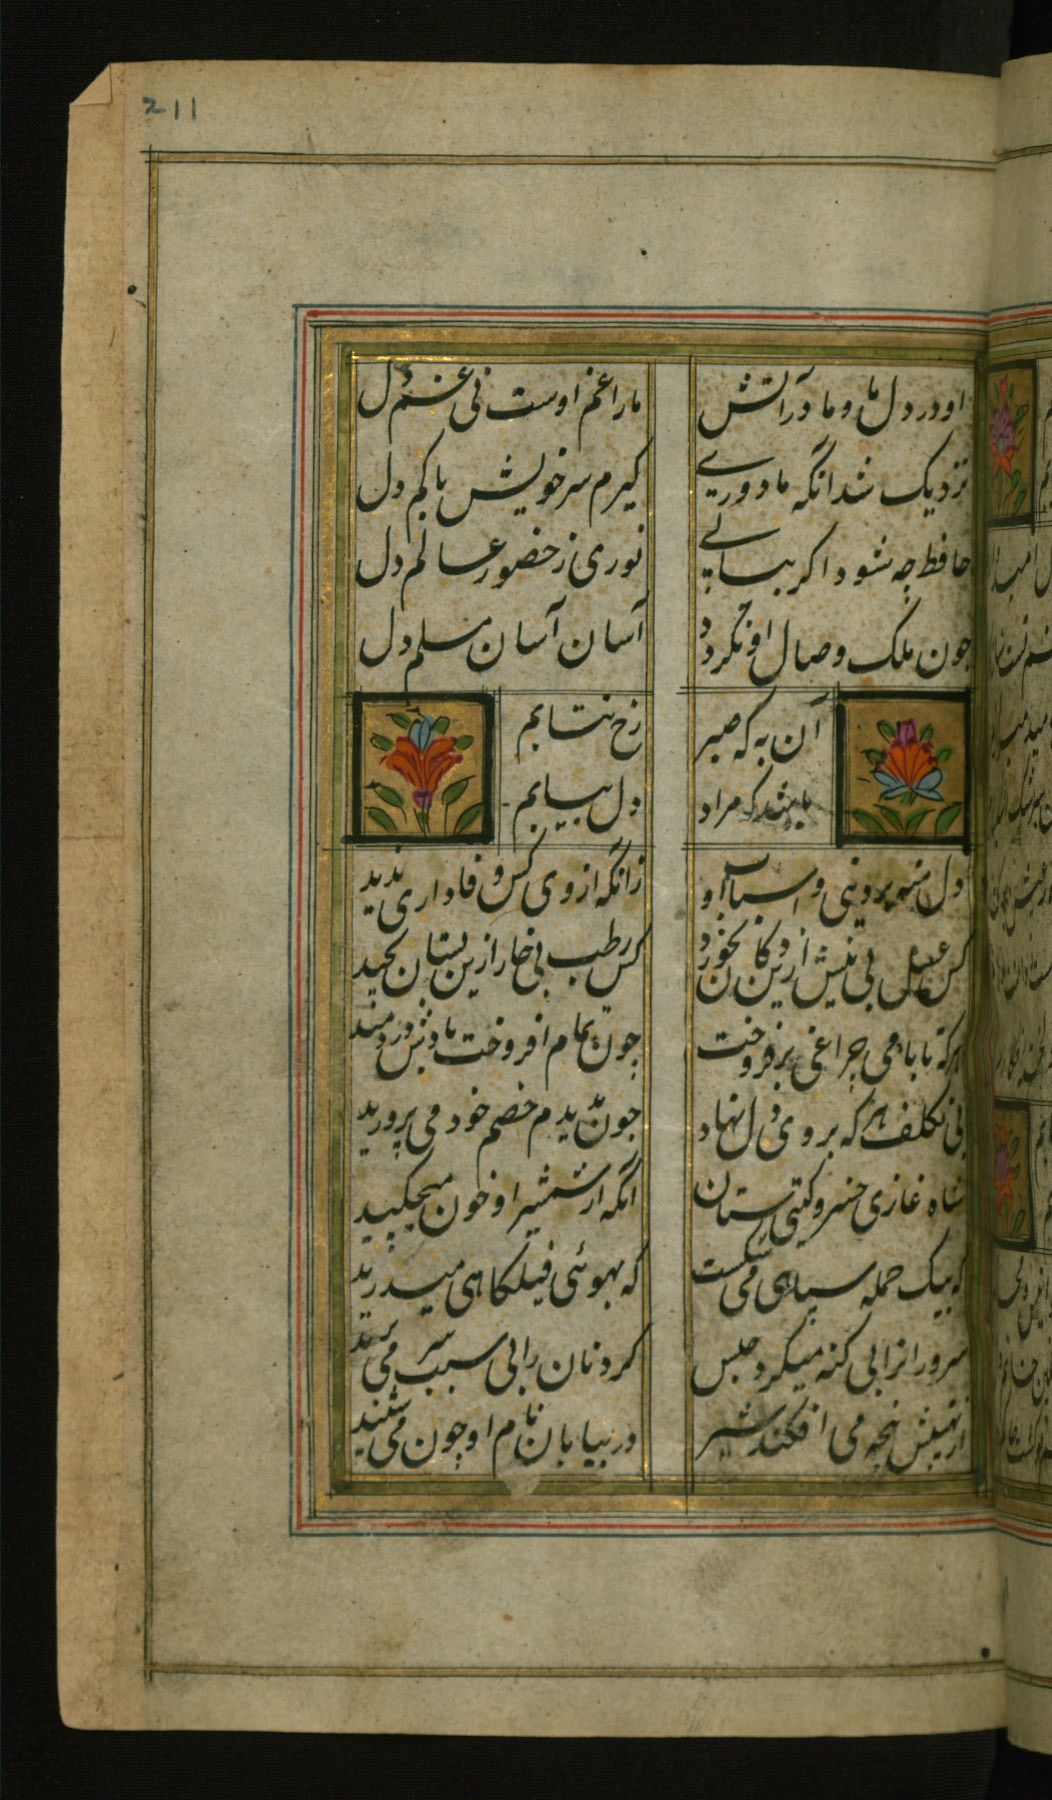 211
او در دل ما و ما در آتش ما را غم اوست نی غم دل
نزدیک شد انگه ما دوری کیرم سر خویش یا کم دل
حافظ چه شود اکر بیابی نوری ز حضور عالم دل
جون ملک وصال او نکردد آسان آسان مسلم دل
آن به که ز صبر رخ نتابم
باشد که مراد دل بیابم
دل منه بر دنیی و اسباب او زانکه از وی کس وفاداری ندید
کس عسل بی نیش ازین دکان نخورد کس رطب بی خار ازین بستان نچید
هرکه بابامی چراغی برفروخت چون تمام افروخت بادش در دمید
بی تکلف هر که بر وی دل نهاد جون بدیدم خصم خود می پرورید
شاه غازی خسرو کیتی ستان انکه از شمشیر او خون میچکید
که بیک حمله سپاهی می شکست که بهوئی فیلکاهی میدرید
سرورانرا بی کنه میکرد حبس کردنان را بی سبب سر می برید
از نهیبش پنجه می افکند شیر در بیابان نام او چون می شنید